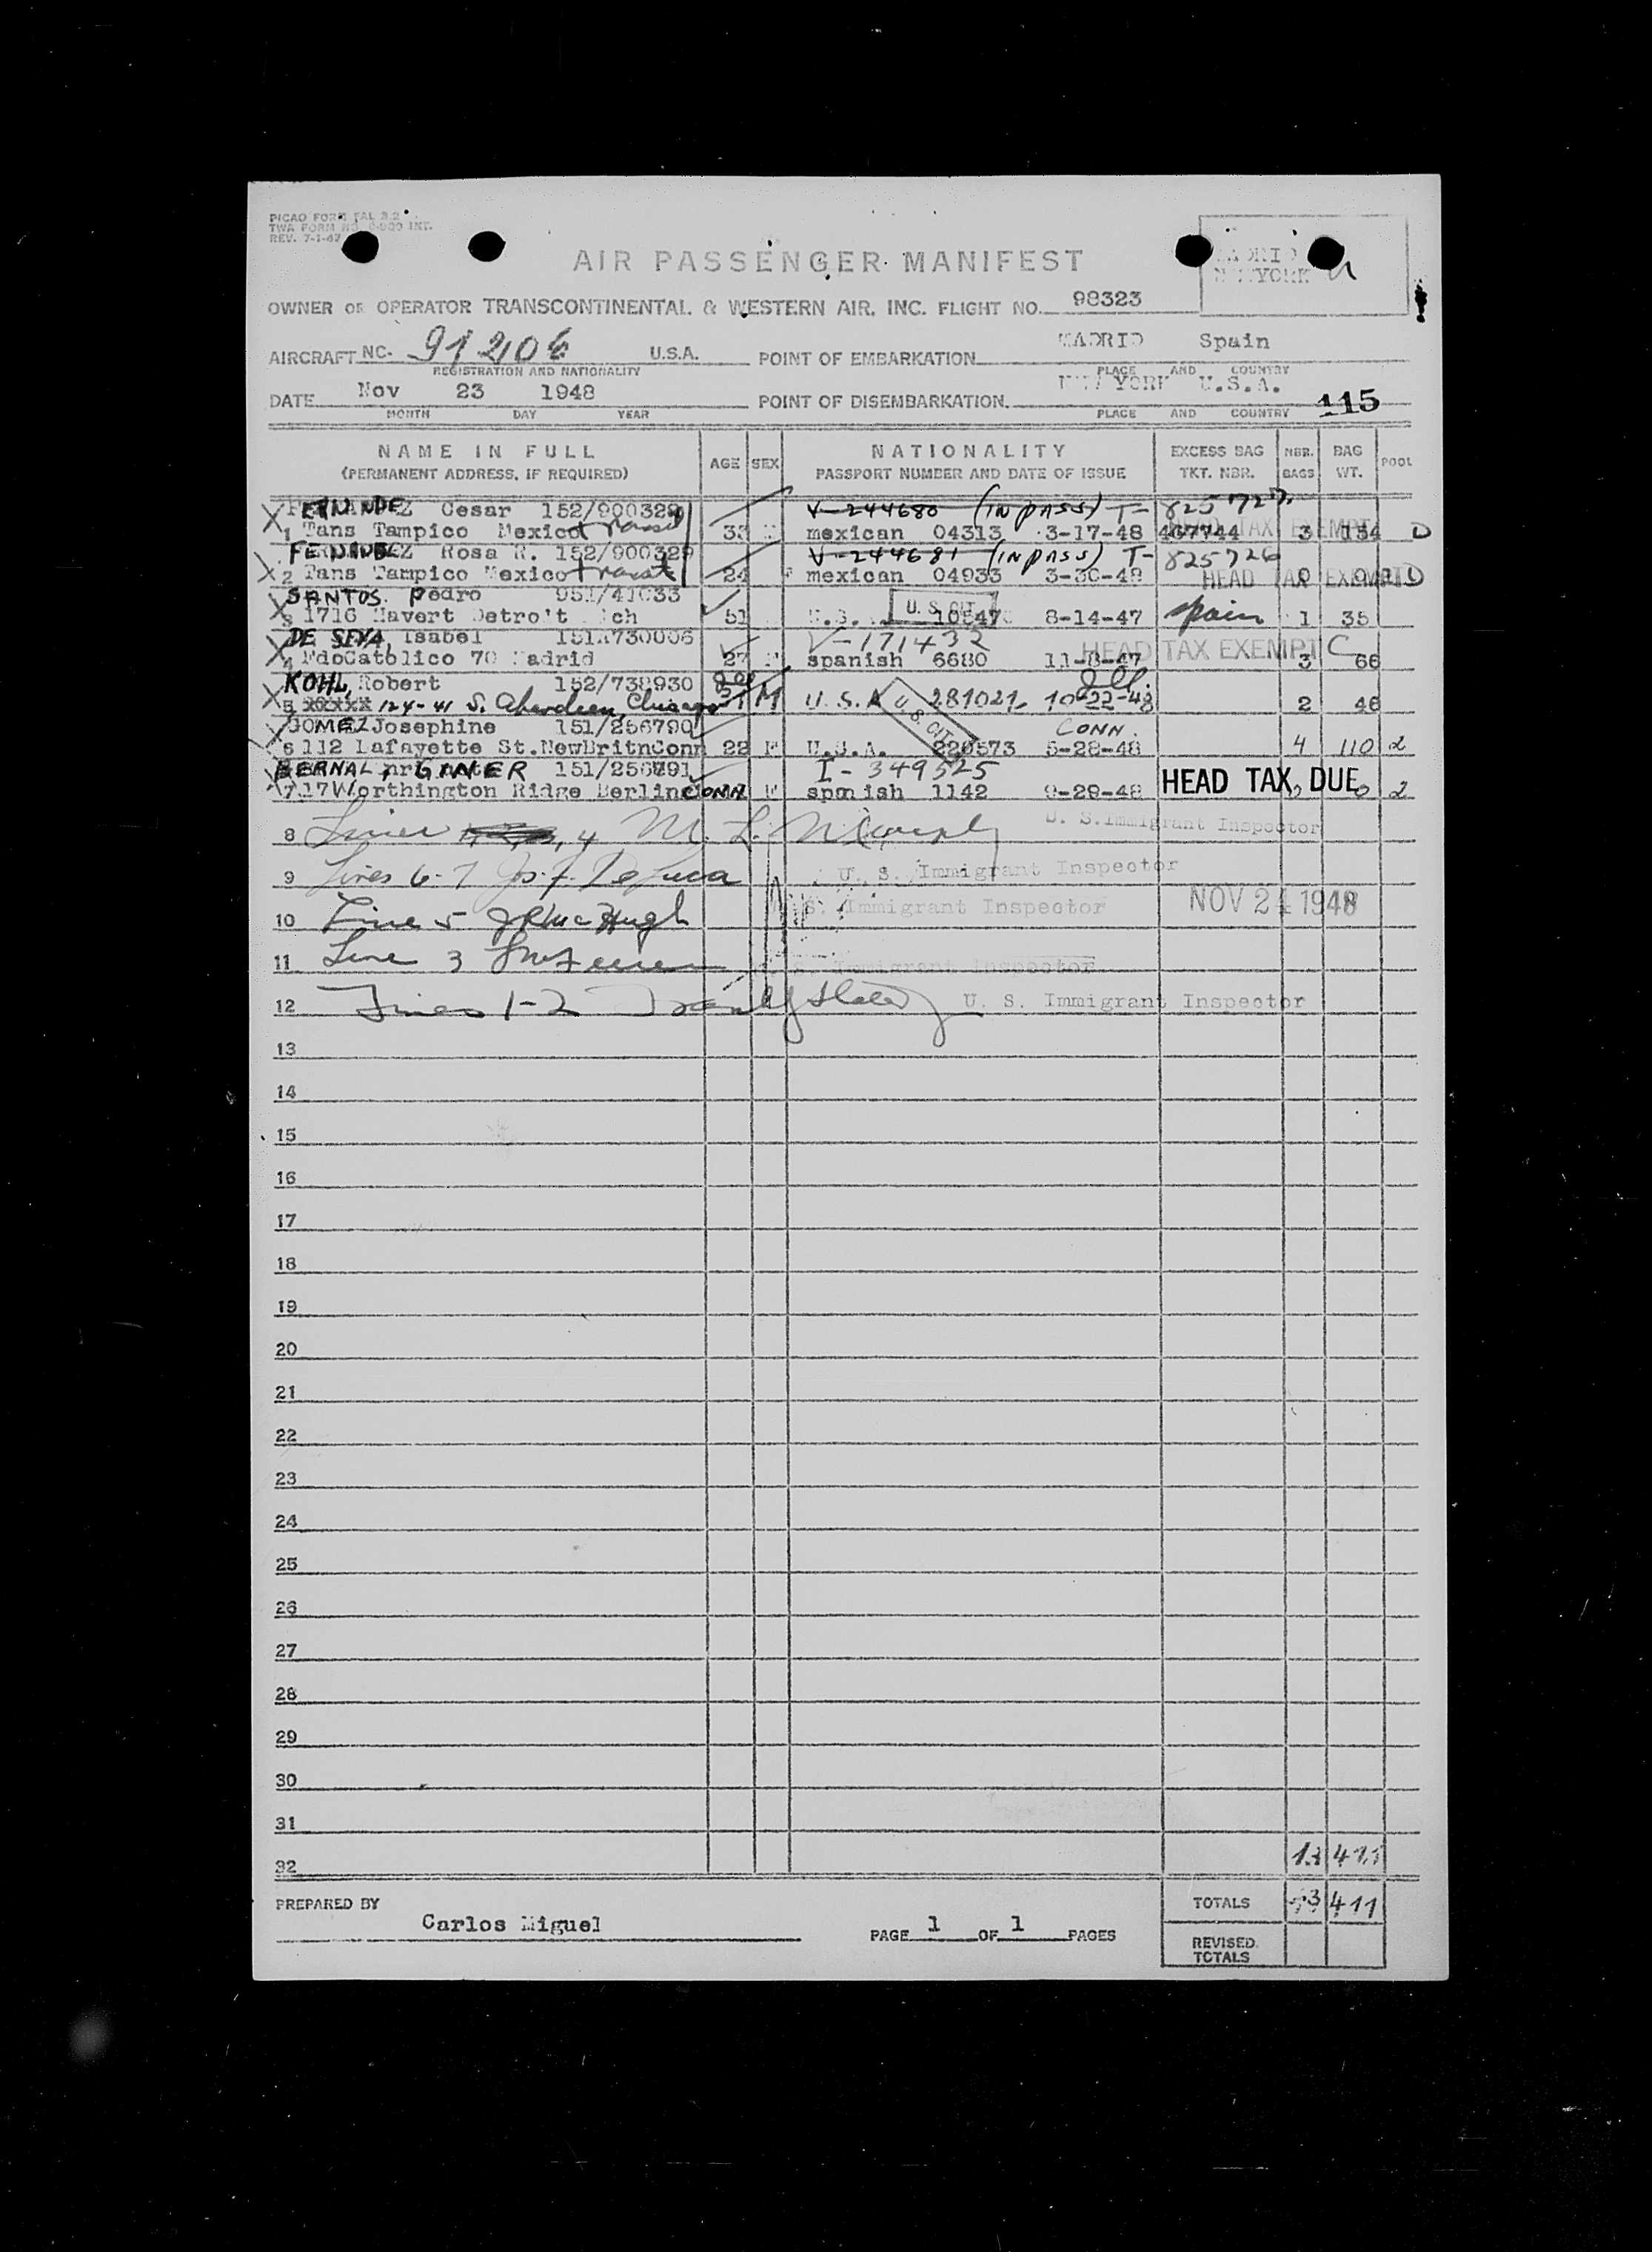 PICAO FORM FAL 3.2
REV. 7-1-47
MADRID
NEW YORK
AIR PASSENGER MANIFEST
OWNER OR OPERATOR TRANSCONTINENTAL & WESTERN AIR, INC. FLIGHT NO. 98323
AIRCRAFT NC- 91206 U.S.A. POINT OF EMBARKATION MADRID Spain
REGISTRATION AND NATIONALITY PLACE AND COUNTRY
DATE Nov 23 1948 POINT OF DISEMBARKATION NEW YORK U.S.A. 115
MONTH DAY YEAR PLACE AND COUNTRY
NAME IN FULL AGE SEX NATIONALITY EXCESS BAG NBR. BAG POOL
(PERMANENT ADDRESS, IF REQUIRED) PASSPORT NUMBER AND DATE OF ISSUE TKT. NBR. BAGS WT.
X FERNANDEZ Cesar V-244680 (IN PASS) T-825727 HEAD TAX EXEMPT
1 Tans Tampico Mexico transit 33 mexican 04313 3-17-48 467744 3 154 D
FERNANDEZ Rosa R. 152/900329 V-244681 (IN PASS) T-825726
X 2 Tans Tampico Mexico transit 24 F mexican 04933 3-30-48 HEAD TAX EXEMPT D
SANTOS. Pedro U.S. CIT.
X 3 1716 Havert 51 U.S. 8-14-47 Spain 1 35
DE SEYA, Isabel V-171432 HEAD TAX EXEMPT C
X 4 FdoCatolico 70 Madrid 27 F spanish 6680 11-8-47 3 66
KOHL, Robert 152/738930
X 5 xxxxx 124-41 S. Aberdeen, Chicago 51 M U.S.A 281021 10-22-48 2 46
U.S. CIT.
X GOMEZ Josephine 151/256790 CONN.
6 112 Lafayette St.NewBritnConn 22 F U.S.A. 220573 5-28-48 4 110 2
BERNAL, 151/256791 I-349525
X 7 17 Worthington Ridge Berlin CONN F spanish 1142 9-29-48 HEAD TAX DUE 2
8 Lines 4 M. L. Murphy U. S. Immigrant Inspector
9 Lines 6-7 Jos. F. DeLuca U. S. Immigrant Inspector
10 Line 5 J R McHugh U. S. Immigrant Inspector NOV 24 1948
11 Line 3 U. S. Immigrant Inspector
12 Lines 1-2 U. S. Immigrant Inspector
13
14
15
16
17
18
19
20
21
22
23
24
25
26
27
28
29
30
31
32 13 411
PREPARED BY Carlos Miguel PAGE 1 OF 1 PAGES TOTALS 13 411
REVISED TOTALS